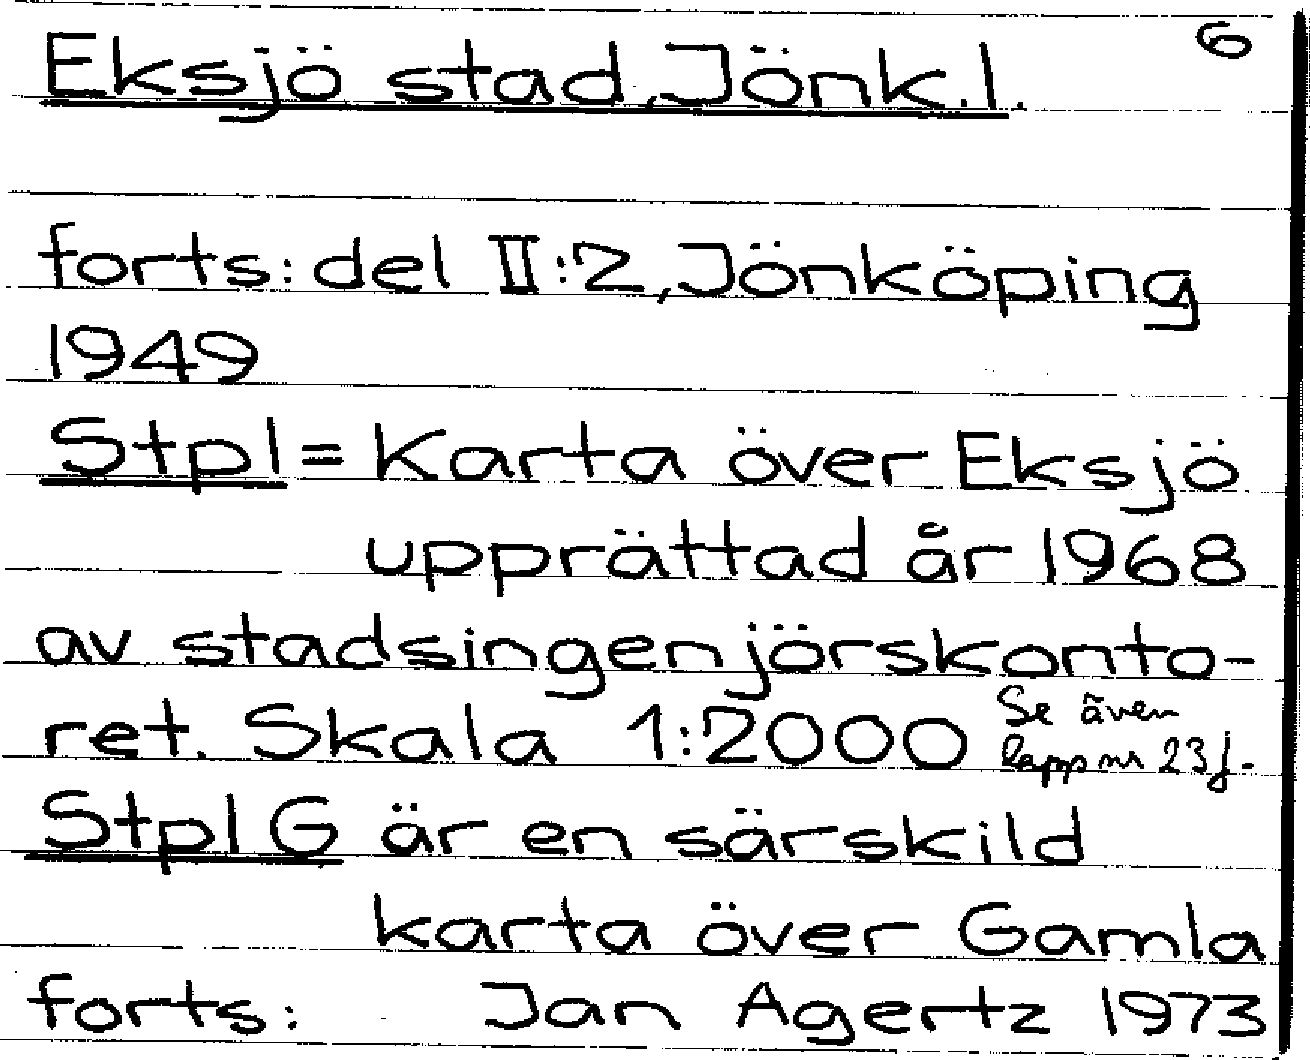 6
Eksjö stad, Jönk.l.
forts: del II:2, Jönköping
1949
Stpl = Karta över Eksjö
upprättad år 1968
av stadsingenjörskonto-
ret. Skala 1:2000
Se även
lapp nr 23f.
Stpl G är en särskild
karta över Gamla
forts: Jan Agertz 1973